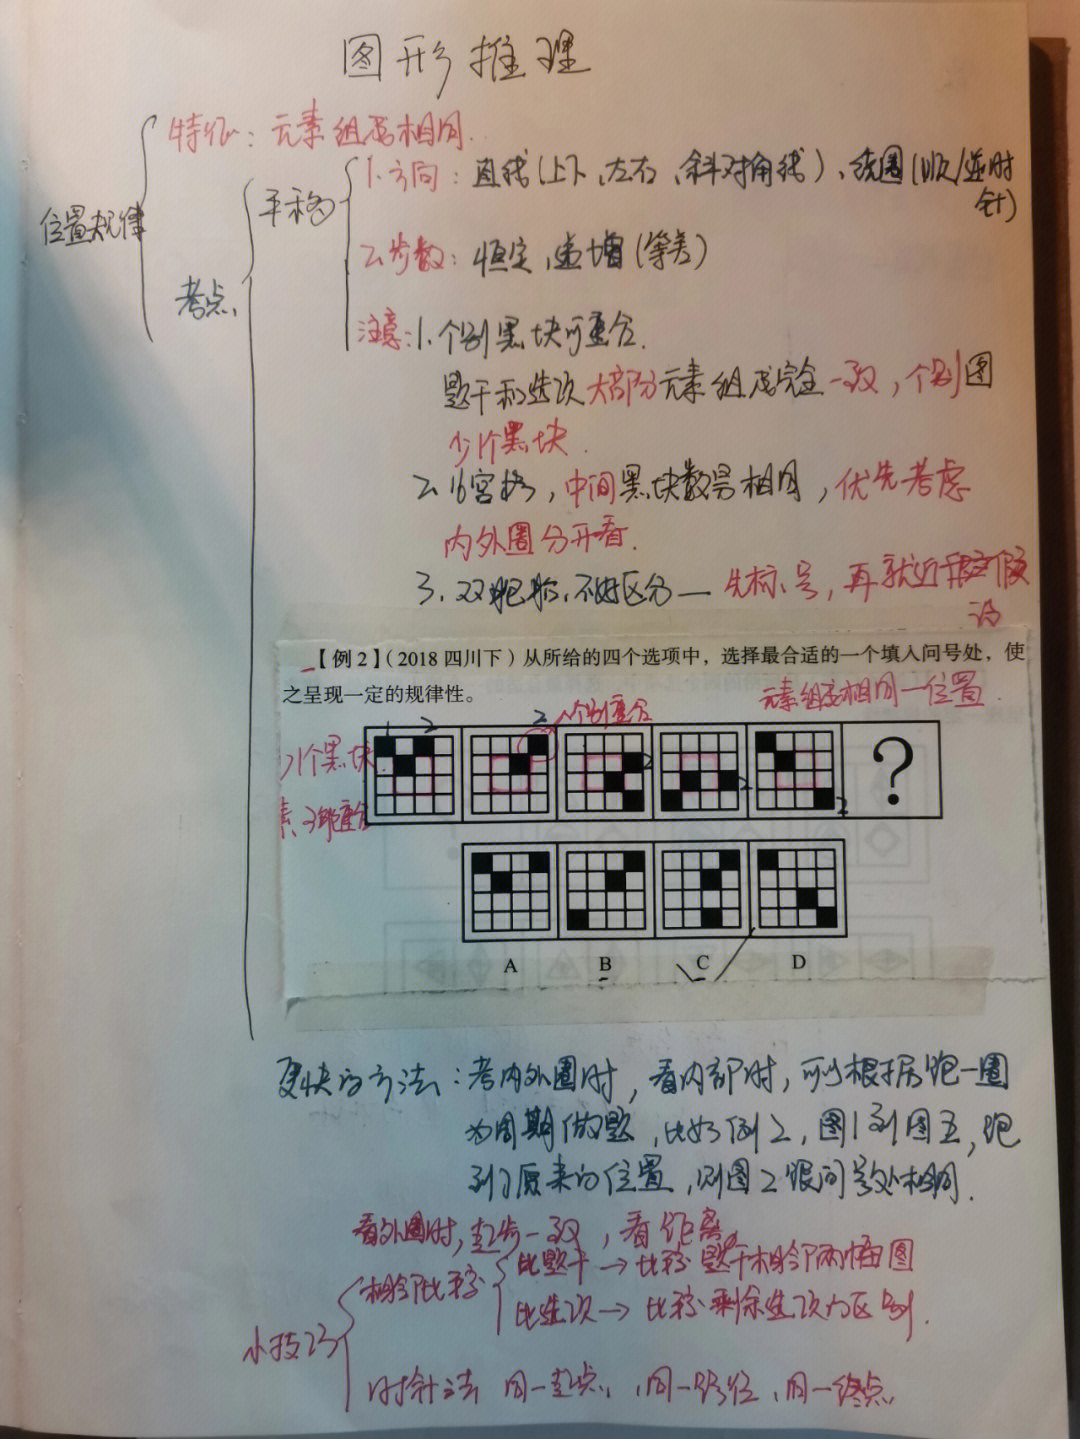 图形推理
特征：元素组成相同.
位置规律
考点、
平移
1.方向：直线(上下、左右、斜对角线)、绕圈(顺/逆时针)
2.步数：恒定、递增(等差)
注意：1.个别黑块可重合.
题干和选项大部分元素组成完全一致，个别图
少1个黑块.
2. 16宫格，中间黑块数量相同，优先考虑
内外圈分开看.
3.双胞胎、不好区分—先标号，再就近假
设
【例 2】（2018 四川下）从所给的四个选项中，选择最合适的一个填入问号处，使
之呈现一定的规律性。
元素组成相同—位置
个别重合
1 2 2 2 2 2
少1个黑块
?
A B C D
更快的方法：考内外圈时，看内部时，可以根据跑一圈
为周期做题，比如例2，图1到图五，跑
到了原来的位置，则图2跟问号处相同.
看外圈时，起步一致，看距离
小技巧
相邻比较
比题干→比较题干相邻两幅图
比选项→比较剩余选项的区别.
时针法 同一起点、同一路径、同一终点